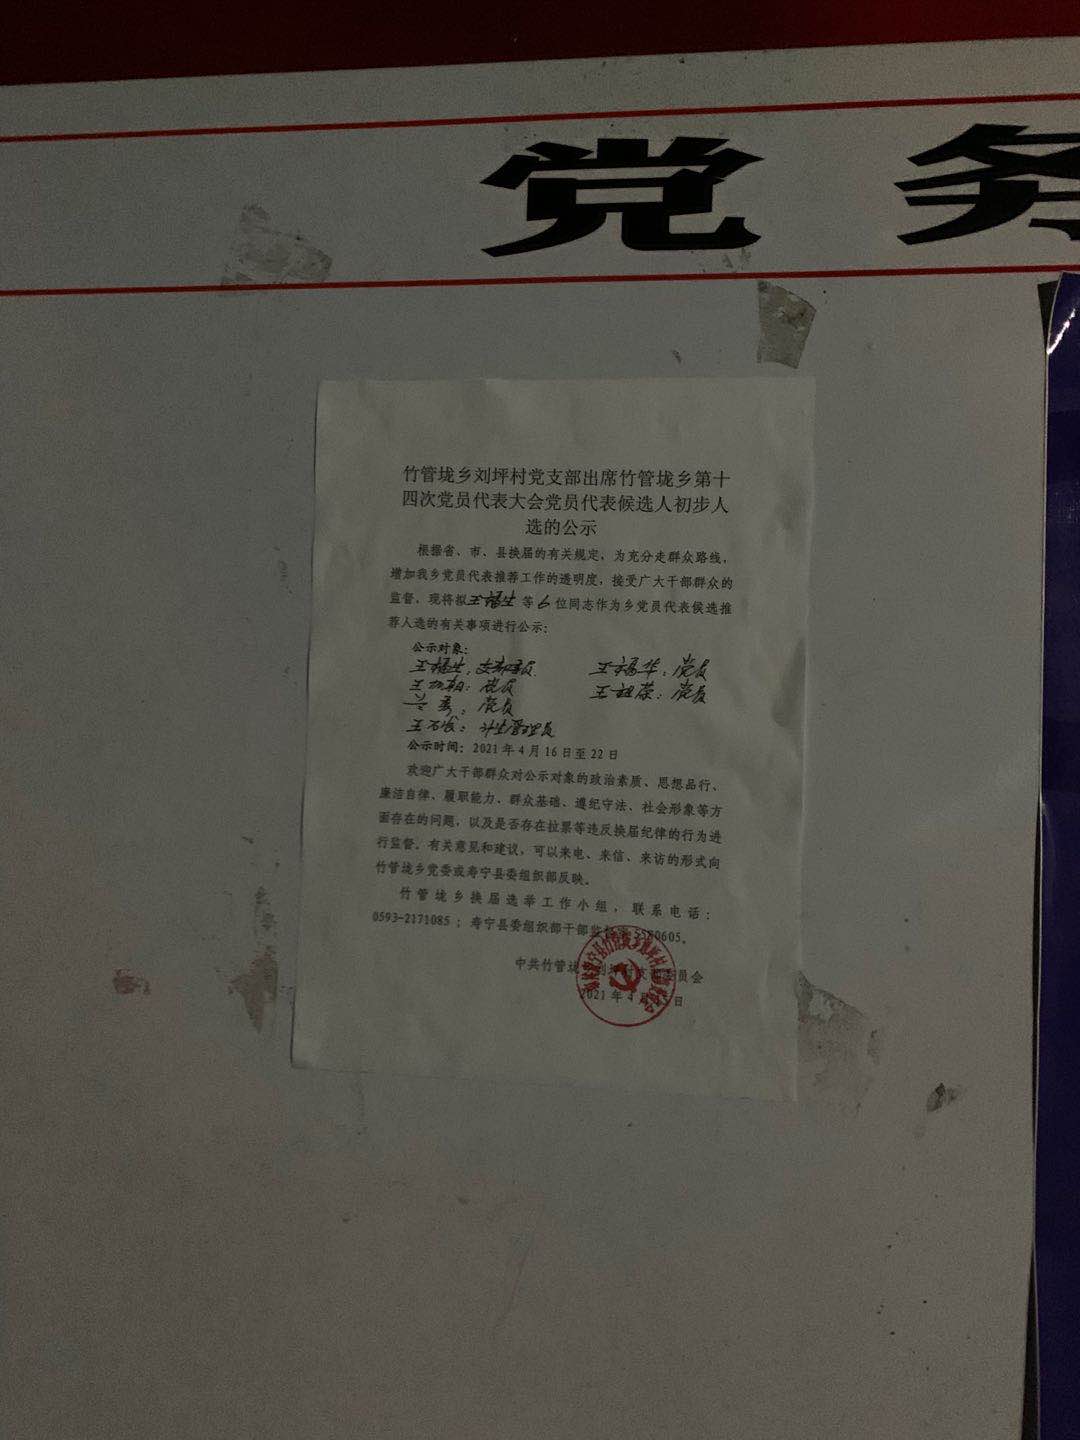 党务
竹管垅乡刘坪村党支部出席竹管垅乡第十
四次党员代表大会党员代表候选人初步人
选的公示
根据省、市、县换届的有关规定，为充分走群众路线，
增加我乡党员代表推荐工作的透明度，接受广大干部群众的
监督，现将拟 等6位同志作为乡党员代表候选推
荐人选的有关事项进行公示：
公示对象：
王 王 华：党员
王 ：党员 王祖荣：党员
：党员
王石 ：计生管理员
公示时间：2021年4月16日至22日
欢迎广大干部群众对公示对象的政治素质、思想品行、
廉洁自律、履职能力、群众基础、遵纪守法、社会形象等方
面存在的问题，以及是否存在拉票等违反换届纪律的行为进
行监督。有关意见和建议，可以来电、来信、来访的形式向
竹管垅乡党委或寿宁县委组织部反映。
竹管垅乡换届选举工作小组，联系电话：
0593-2171085；寿宁县委组织部干部监 5580605。
中共竹管垅 员会
2021年4月 日